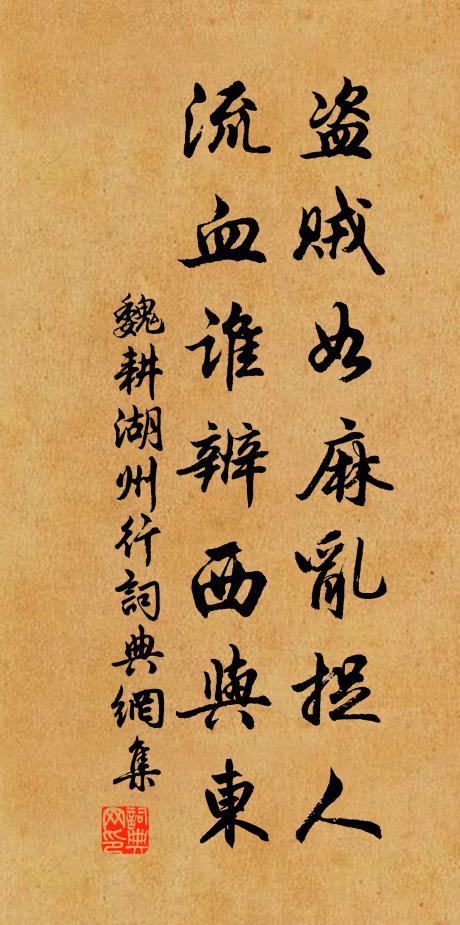 盗賊如麻亂捉人
流血谁辨西與東
魏耕湖州行詞典網集
詞典网印